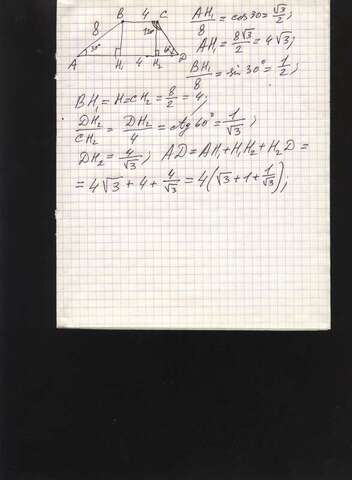 8 B 4 C
30° 120° 60°
A H₁ 4 H₂ D
AH₁/8 = cos30 = √3/2;
AH₁ = 8√3/2 = 4√3;
BH₁/8 = sin 30° = 1/2;
BH₁ = H = CH₂ = 8/2 = 4;
DH₂/CH₂ = DH₂/4 = ctg 60° = 1/√3;
DH₂ = 4/√3; AD = AH₁ + H₁H₂ + H₂D =
= 4√3 + 4 + 4/√3 = 4(√3 + 1 + 1/√3);